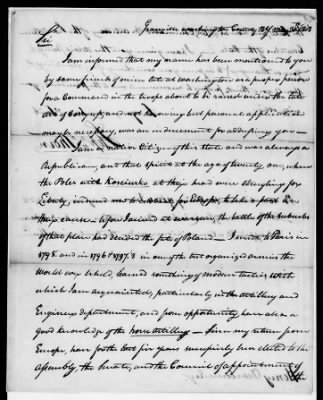 Granville Washington County NY
Sir
I am informed that my name has been mentioned to you
by some friends of mine late at Washington as a proper person
for a Command in the troops about to be raised under the late
act of Congress, and not knowing but personal application
may be necessary, was an inducement for addressing you —
I am a native Citizen of this state and was always a
Republican, and that spirit at the age of twenty one, when
the Poles with Kosciusko at their head were struggling for
Liberty, induced me to embark for Europe, to take a part in
their cause — before I arrived at Warsaw, the battle of the suburbs
of that place had decided the fate of Poland — I went to Paris in
1795. and in 1796 & 1797, & in one of the best organized armies the
world ever beheld, learned something of modern tactics with
which I am acquainted, particularly in the artillery and
Engineers department, and from opportunity, have also a
good knowledge of the horse artillery — Since my return from
Europe, have for the last five years successively been elected to the
Assembly, the Senate, and the Council of appointment of